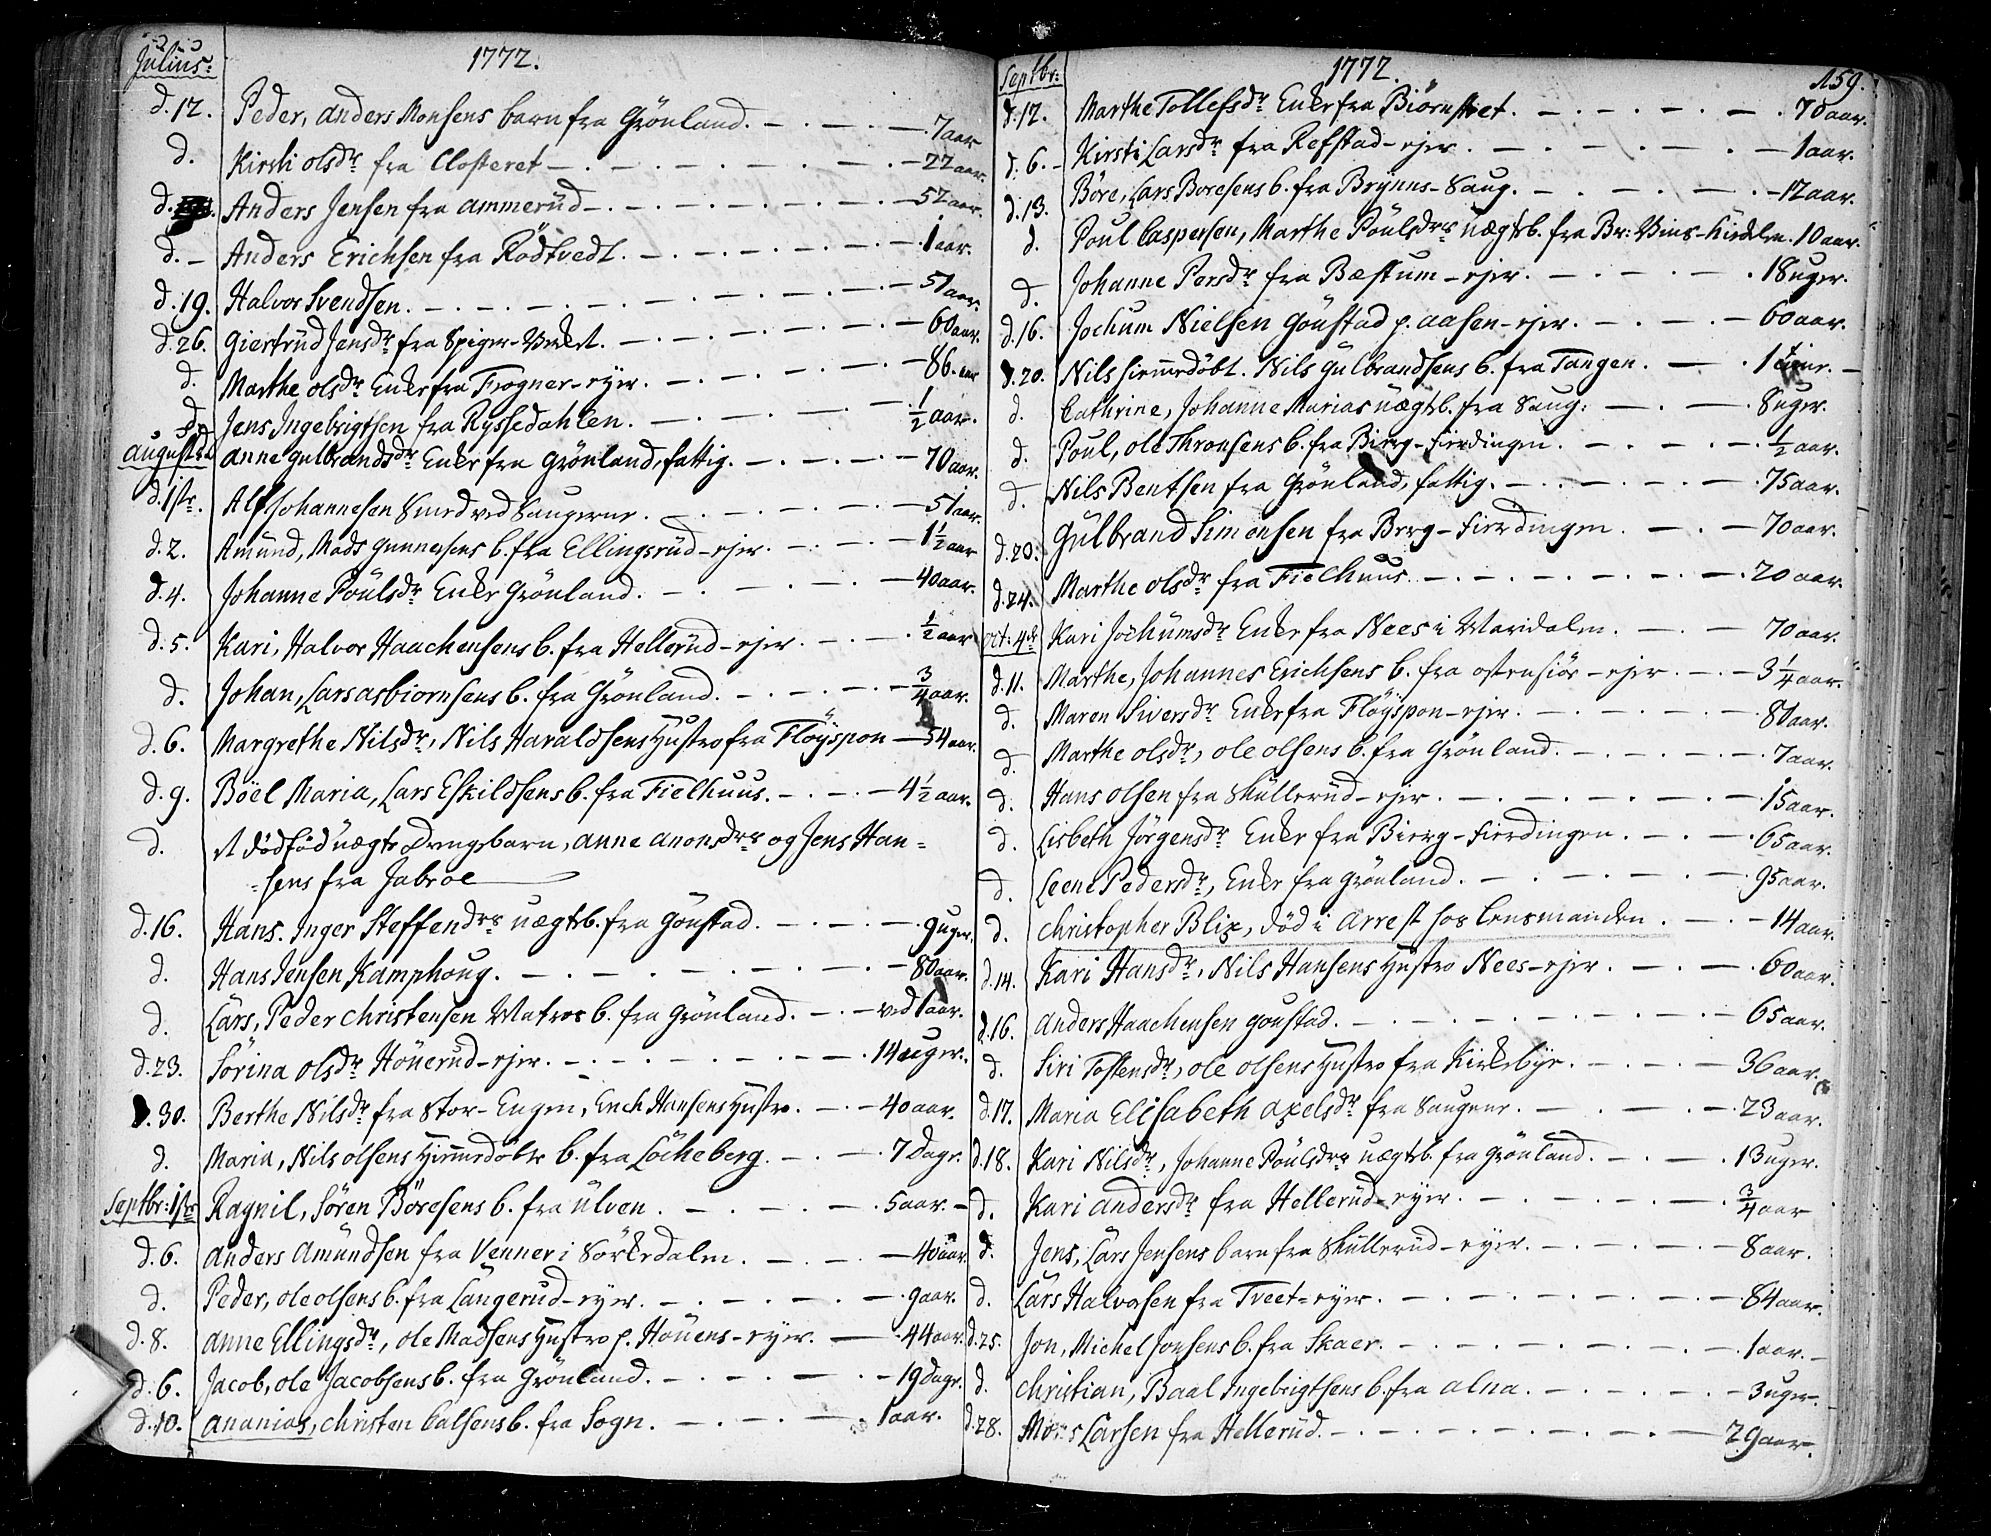 Julius:
1772.
d. 12. Peder, Anders Monsens barn fra Grönland. 7 aar
d. Kirsti olsdr fra Closteret 22 aar.
d. Anders Jensen fra Ammerüd 52 aar.
d. Anders Erichsen fra Rödtvedt. 1 aar.
d. 19. Halvor Svendsen. 51 aar.
d. 26. Giertrüd Jensdr fra Spiger-Verket. 60 aar.
d. Marthe olsdr Enke fra Frogner-ejer. 86. aar
d. Jens Ingebrigtsen fra Ryssedahlen. 1/2 aar.
August Anne Gulbrandsdr Enke fra Grönland, fattig. 70 aar.
d. 1ste. Alf Johannesen Smed ved Saugerne. 51 aar.
d. 2. Amünd, Mads Gunnersens b. fra Ellingsrüd-ejer. 1 1/2 aar
d. 4. Johanne Poulsdr Enke Grönland. 40 aar.
d. 5. Kari, Halvor Haachensens b. fra Hellerüd-ejer. 1/2 aar
d. Johan, Lars asbiornsens b. fra Grönland. 3/4 aar.
d. 6. Margrethe Nilsdr, Nils Haraldsens Hustro fra Flöyspon 54 aar.
d. 9. Böel Maria, Lars Eskildsens b. fra Fielhuus. 4 1/2 aar.
d. Et dödföd uægte Drengebarn, Anne anonsdrs og Jens Han=
=sens fra Jabroe
d. 16. Hans. Inger Steffensdrs uægtb. fra Goustad. 9 uger.
d. Hans Jensen Kamphoug. 80 aar.
d. Lars, Peder Christensen Matros b. fra Grönland. ved 1 aar.
d. 23. Sörina olsdr Hönerud-ejer. 14 uger.
d. 30. Berthe Nilsdr fra Stor-Engen, Erich Hansens Hustro. 40 aar.
d. Maria, Nils olsens Hiemmedöbte b. fra Löcheberg. 7 dage.
Septbr: 1ste Ragnil, Sören Böresens b. fra Ulven. 5 aar.
d. 6. Anders Amündsen fra Venner i Sörkedalen. 40 aar
d. Peder, ole olsens b. fra Langerud-ejer. 9 aar.
d. 8. Anne Ellingsdr, ole Madsens Hustro p. Houens-ejer. 44 aar.
d. 6. Jacob, ole Jacobsens b. fra Grönland. 19 dage.
d. 10. Ananias, Christen Calsens b. fra Sogn. 1 aar.
Septbr:
1772.
159.
d. 12. Marthe Tollefsdr Enke fra Biörnstvet. 70 aar.
d. 6. Kirsti Larsdr fra Refstad-ejer. 1 aar.
d. 13. Böre, Lars Boresens b. fra Brynns-Saug. 12 aar.
d. Poul Caspersen, Marthe Poulsdrs uægtb. fra Br: Viins-Kielde. 10 aar.
d. Johanne Persdr fra Bæstum-ejer. 18 uger.
d. 16. Jochum Nielsen Goustad p. aasen-ejer. 60 aar.
d. 20. Nils hiemmedöbt. Nils Gulbrandsens b. fra Tangen. 1 time.
d. Cathrine, Johanne Marias uægtb. fra Saug. 8 uger.
d. Poul, ole Thronsens b. fra Bierg-Fierdingen. 1/2 aar.
d. Nils Bentsen fra Grönland, fattig. 75 aar.
d. 20. Gulbrand Simensen fra Berg-Fierdingen. 70 aar.
d. 24. Marthe olsdr fra Fielhuus. 20 aar.
Oct: 4de Kari Jochumsdr Enke fra Nees i Maridalen. 70 aar.
d. 11. Marthe, Johannes Erichsens b. fra ostensiös-ejer. 3 1/4 aar.
d. Maren Siversdr Enke fra Flöyspon-ejer. 81 aar.
d. Marthe olsdr, ole olsens b. fra Grönland. 7 aar.
d. Hans olsen fra Skullerüd-ejer. 15 aar.
d. Lisbeth Jörgensdr Enke fra Bierg-Fierdingen. 65 aar.
d. Leene Pedersdr, Enke fra Grönland. 95 aar.
d. Christopher Blix, död i Arrest hos Lensmanden. 14 aar.
d. 14. Kari Hansdr, Nils Hansens Hustro Nees-ejer. 60 aar.
d. 16. Anders Haachensen Goustad. 65 aar.
d. Siri Tostensdr, ole olsens Hustro fra Kirkebye. 36 aar.
d. 17. Maria Elisabeth Axelsdr fra Saugene. 23 aar.
d. 18. Kari Nilsdr, Johanne Poulsdrs uægtb. fra Grönland. 13 uger.
d. Kari Andersdr fra Hellerüd-ejer. 3/4 aar
d. Jens, Lars Jensens barn fra Skullerüd-ejer. 8 aar.
d. Lars Halvorsen fra Tveet-ejer. 84 aar.
d. 25. Jon, Michel Jonsens b. fra Skaer. 1 aar.
d. Christian, Baal Ingebrigtsens b. fra Alna. 3 uger.
d. 28. Mons Larsen fra Hellerüd. 29 aar.